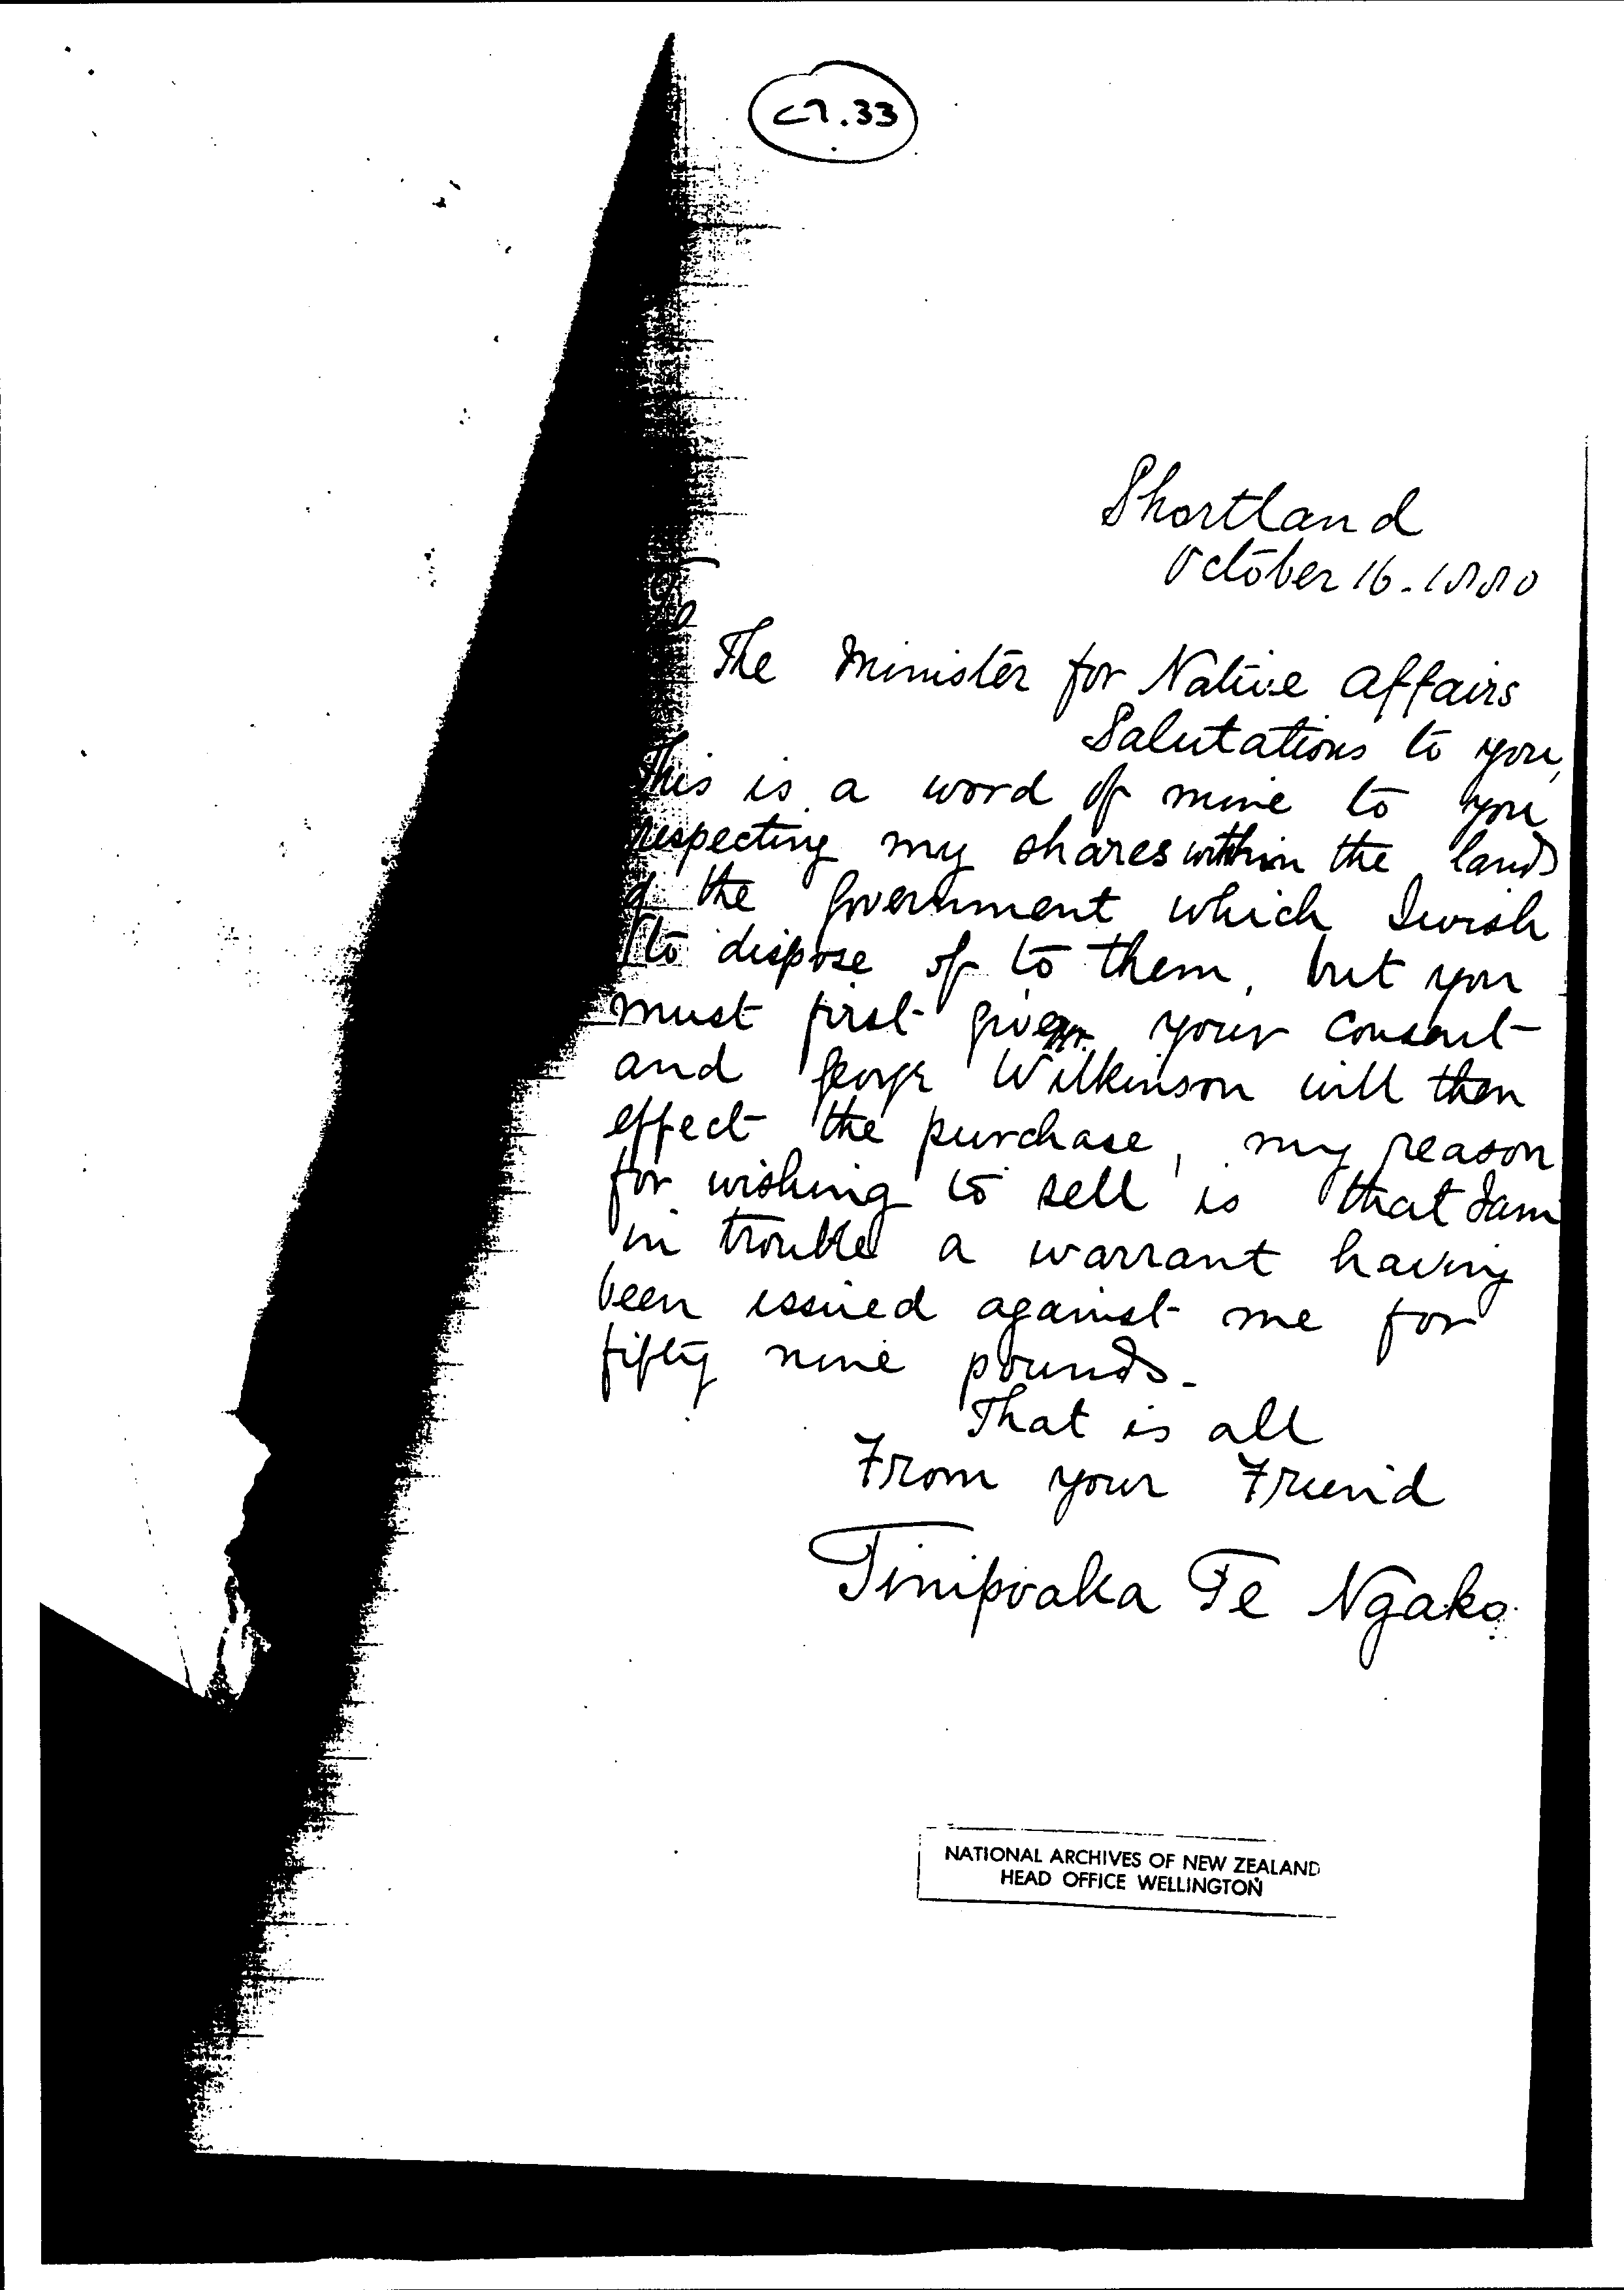 C7.33
Shortland
October 16. 1880
To
The Minister for Native Affairs
Salutations to you,
This is a word of mine to you
respecting my shares within the lands
of the Government which I wish
to dispose of to them, but you
must first give your consent
and George Wilkinson will then
effect the purchase, my reason
for wishing to sell is that I am
in trouble a warrant having
been issued against me for
fifty nine pounds.
That is all
From your Friend
Tinipoaka Te Ngako
NATIONAL ARCHIVES OF NEW ZEALAND
HEAD OFFICE WELLINGTON